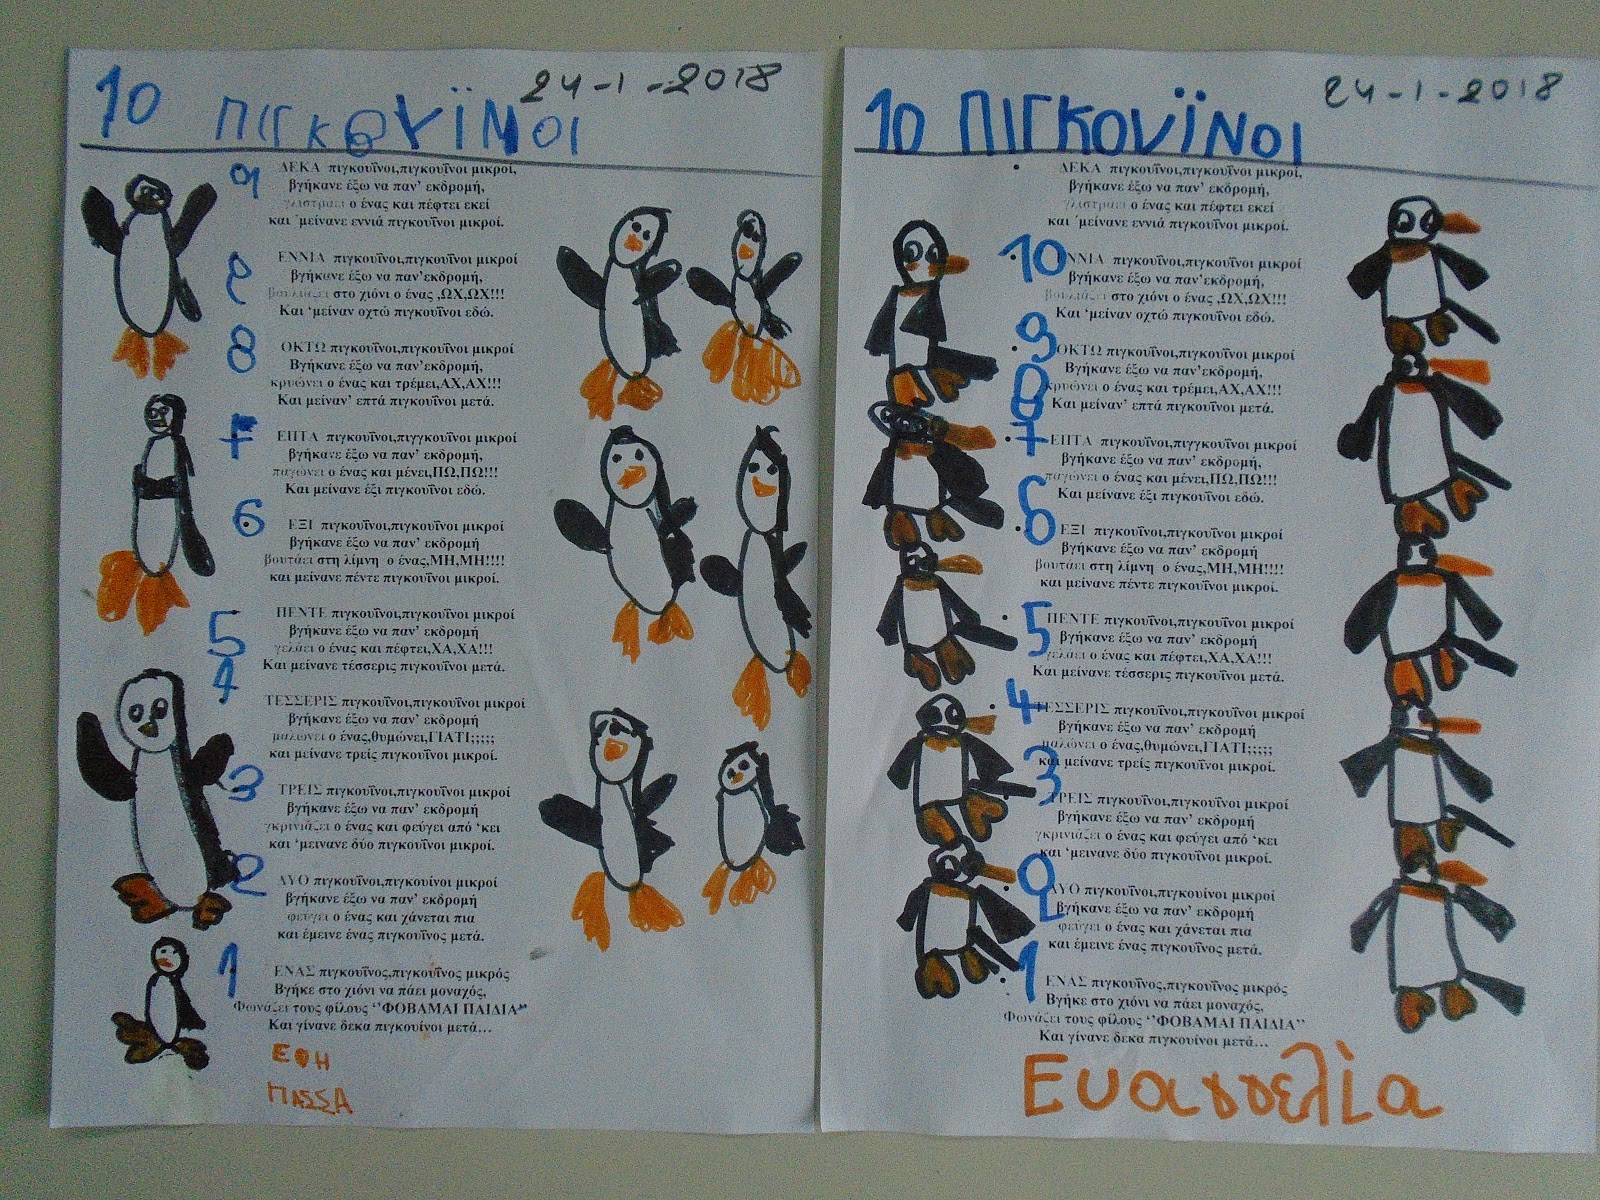 10 ΠΙΓΚΟΥΪΝΟΙ
24-1-2018
9
ΔΕΚΑ πιγκουΐνοι,πιγκουΐνοι μικροί,
βγήκανε έξω να παν' εκδρομή,
γλιστράει ο ένας και πέφτει εκεί
και ΄μείνανε εννιά πιγκουΐνοι μικροί.
ΕΝΝΙΑ πιγκουΐνοι,πιγκουΐνοι μικροί
βγήκανε έξω να παν'εκδρομή,
βουλιάζει στο χιόνι ο ένας ,ΩΧ,ΩΧ!!!
Και ‘μείναν οχτώ πιγκουΐνοι εδώ.
8
ΟΚΤΩ πιγκουΐνοι,πιγκουΐνοι μικροί
Βγήκανε έξω να παν’ εκδρομή,
κρυώνει ο ένας και τρέμει,ΑΧ,ΑΧ!!!
Και μείναν’ επτά πιγκουΐνοι μετά.
7
ΕΠΤΑ πιγκουΐνοι,πιγγκουΐνοι μικροί
βγήκανε έξω να παν’ εκδρομή,
παγώνει ο ένας και μένει,ΠΩ,ΠΩ!!!
Και μείνανε έξι πιγκουΐνοι εδώ.
6
ΕΞΙ πιγκουΐνοι,πιγκουΐνοι μικροί
βγήκανε έξω να παν’ εκδρομή
βουτάει στη λίμνη ο ένας,ΜΗ,ΜΗ!!!!
και μείνανε πέντε πιγκουΐνοι μικροί.
5
ΠΕΝΤΕ πιγκουΐνοι,πιγκουΐνοι μικροί
βγήκανε έξω να παν’ εκδρομή
γελάει ο ένας και πέφτει,ΧΑ,ΧΑ!!!
Και μείνανε τέσσερις πιγκουΐνοι μετά.
4
ΤΕΣΣΕΡΙΣ πιγκουΐνοι,πιγκουΐνοι μικροί
βγήκανε έξω να παν’ εκδρομή
μαλώνει ο ένας,θυμώνει,ΓΙΑΤΙ;;;;;
και μείνανε τρείς πιγκουΐνοι μικροί.
3
ΤΡΕΙΣ πιγκουΐνοι,πιγκουΐνοι μικροί
βγήκανε έξω να παν’ εκδρομή
γκρινιάζει ο ένας και φεύγει από ‘κει
και ‘μεινανε δύο πιγκουΐνοι μικροί.
2
ΔΥΟ πιγκουΐνοι,πιγκουίνοι μικροί
βγήκανε έξω να παν’ εκδρομή
φεύγει ο ένας και χάνεται πια
και έμεινε ένας πιγκουΐνος μετά.
1
ΕΝΑΣ πιγκουΐνος,πιγκουΐνος μικρός
Βγήκε στο χιόνι να πάει μοναχός,
Φωνάζει τους φίλους ‘’ΦΟΒΑΜΑΙ ΠΑΙΔΙΑ’’
Και γίνανε δεκα πιγκουίνοι μετά…
ΕΦΗ
ΠΑΣΣΑ
10 ΠΙΓΚΟΥΪΝΟΙ
24-1-2018
ΔΕΚΑ πιγκουΐνοι,πιγκουΐνοι μικροί,
βγήκανε έξω να παν' εκδρομή,
γλιστράει ο ένας και πέφτει εκεί
και ΄μείνανε εννιά πιγκουΐνοι μικροί.
10
ΕΝΝΙΑ πιγκουΐνοι,πιγκουΐνοι μικροί
βγήκανε έξω να παν'εκδρομή,
βουλιάζει στο χιόνι ο ένας ,ΩΧ,ΩΧ!!!
Και ‘μείναν οχτώ πιγκουΐνοι εδώ.
9
ΟΚΤΩ πιγκουΐνοι,πιγκουΐνοι μικροί
Βγήκανε έξω να παν’ εκδρομή,
8
κρυώνει ο ένας και τρέμει,ΑΧ,ΑΧ!!!
Και μείναν’ επτά πιγκουΐνοι μετά.
7
ΕΠΤΑ πιγκουΐνοι,πιγγκουΐνοι μικροί
βγήκανε έξω να παν’ εκδρομή,
παγώνει ο ένας και μένει,ΠΩ,ΠΩ!!!
Και μείνανε έξι πιγκουΐνοι εδώ.
6
ΕΞΙ πιγκουΐνοι,πιγκουΐνοι μικροί
βγήκανε έξω να παν’ εκδρομή
βουτάει στη λίμνη ο ένας,ΜΗ,ΜΗ!!!!
και μείνανε πέντε πιγκουΐνοι μικροί.
5
ΠΕΝΤΕ πιγκουΐνοι,πιγκουΐνοι μικροί
βγήκανε έξω να παν’ εκδρομή
γελάει ο ένας και πέφτει,ΧΑ,ΧΑ!!!
Και μείνανε τέσσερις πιγκουΐνοι μετά.
4
ΤΕΣΣΕΡΙΣ πιγκουΐνοι,πιγκουΐνοι μικροί
βγήκανε έξω να παν’ εκδρομή
μαλώνει ο ένας,θυμώνει,ΓΙΑΤΙ;;;;;
και μείνανε τρείς πιγκουΐνοι μικροί.
3
ΤΡΕΙΣ πιγκουΐνοι,πιγκουΐνοι μικροί
βγήκανε έξω να παν’ εκδρομή
γκρινιάζει ο ένας και φεύγει από ‘κει
και ‘μεινανε δύο πιγκουΐνοι μικροί.
2
ΔΥΟ πιγκουΐνοι,πιγκουίνοι μικροί
βγήκανε έξω να παν’ εκδρομή
φεύγει ο ένας και χάνεται πια
και έμεινε ένας πιγκουΐνος μετά.
1
ΕΝΑΣ πιγκουΐνος,πιγκουΐνος μικρός
Βγήκε στο χιόνι να πάει μοναχός,
Φωνάζει τους φίλους ‘’ΦΟΒΑΜΑΙ ΠΑΙΔΙΑ’’
Και γίνανε δεκα πιγκουίνοι μετά…
Ευαγγελία